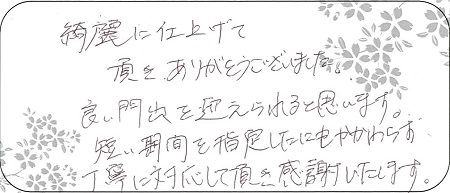 綺麗に仕上げて
頂き、ありがとうございました。
良い門出を迎えられると思います。
短い期間を指定したにもかかわらず
丁寧に対応して頂き感謝いたします。